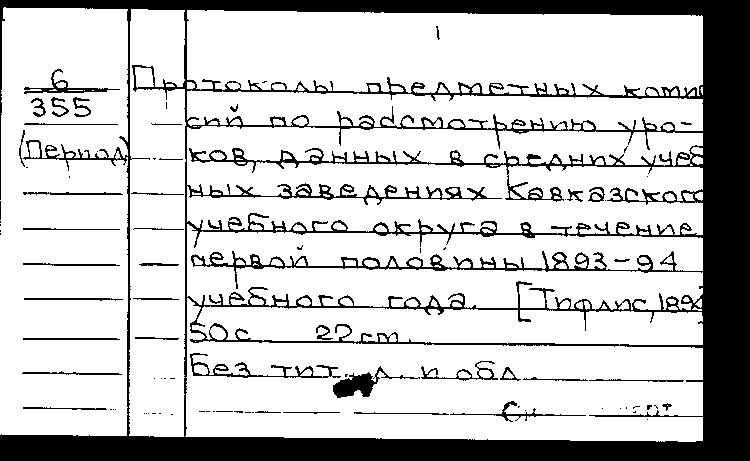 1
6
355
(Период)
Протоколы предметных комис
сий по рассмотрению уро-
ков, данных в средних учеб
ных заведениях Кавказского
учебного округа в течение
первой половины 1893-94
учебного года. [Тифлис, 1894
50с. 22 cm.
Без тит. л. и обл.
См